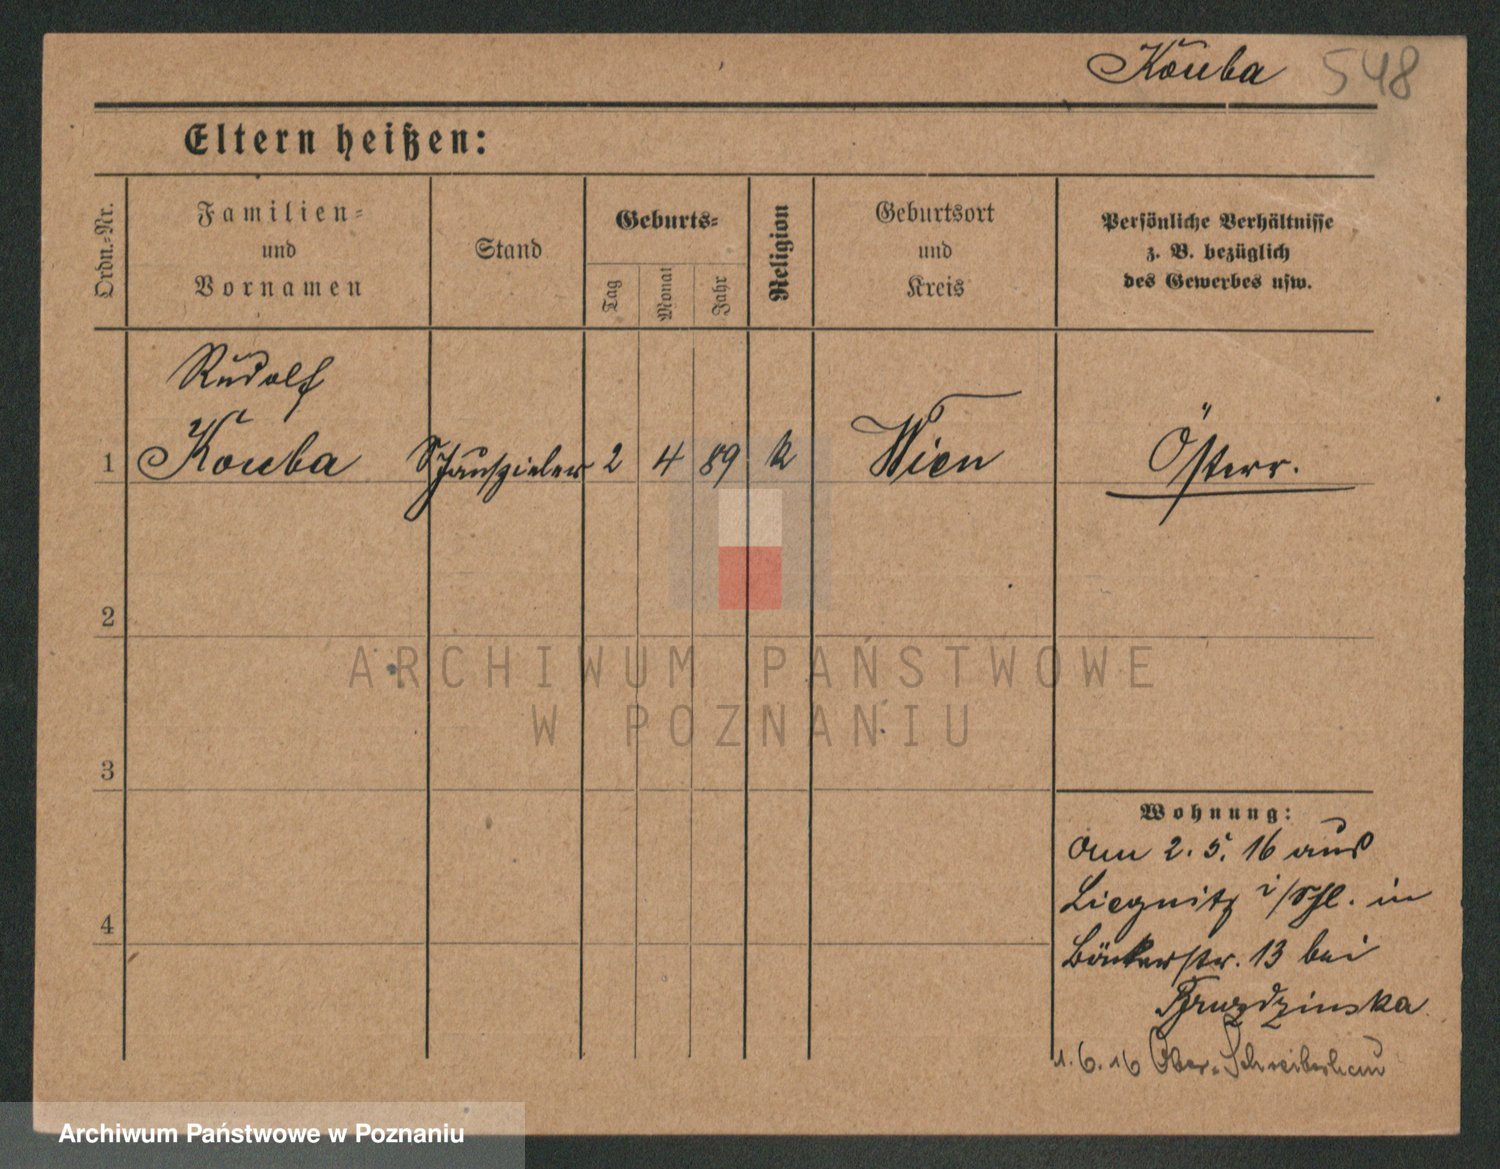 Kouba 548
Eltern heißen:
Ordn.-Nr.
Familien-
und
Vornamen
Stand
Geburts-
Tag
Monat
Jahr
Religion
Geburtsort
und
Kreis
Persönliche Verhältnisse
z. B. bezüglich
des Gewerbes usw.
Rudolf
1 Kouba Schauspieler 2 4 89 k Wien Österr.
2
3
4
ARCHIWUM PAŃSTWOWE
W POZNANIU
Wohnung:
am 2. 5. 16 aus
Liegnitz i/Schl. in
Bäckerstr. 13 bei
1.6.16 Ober-Schreiberhau
Archiwum Państwowe w Poznaniu